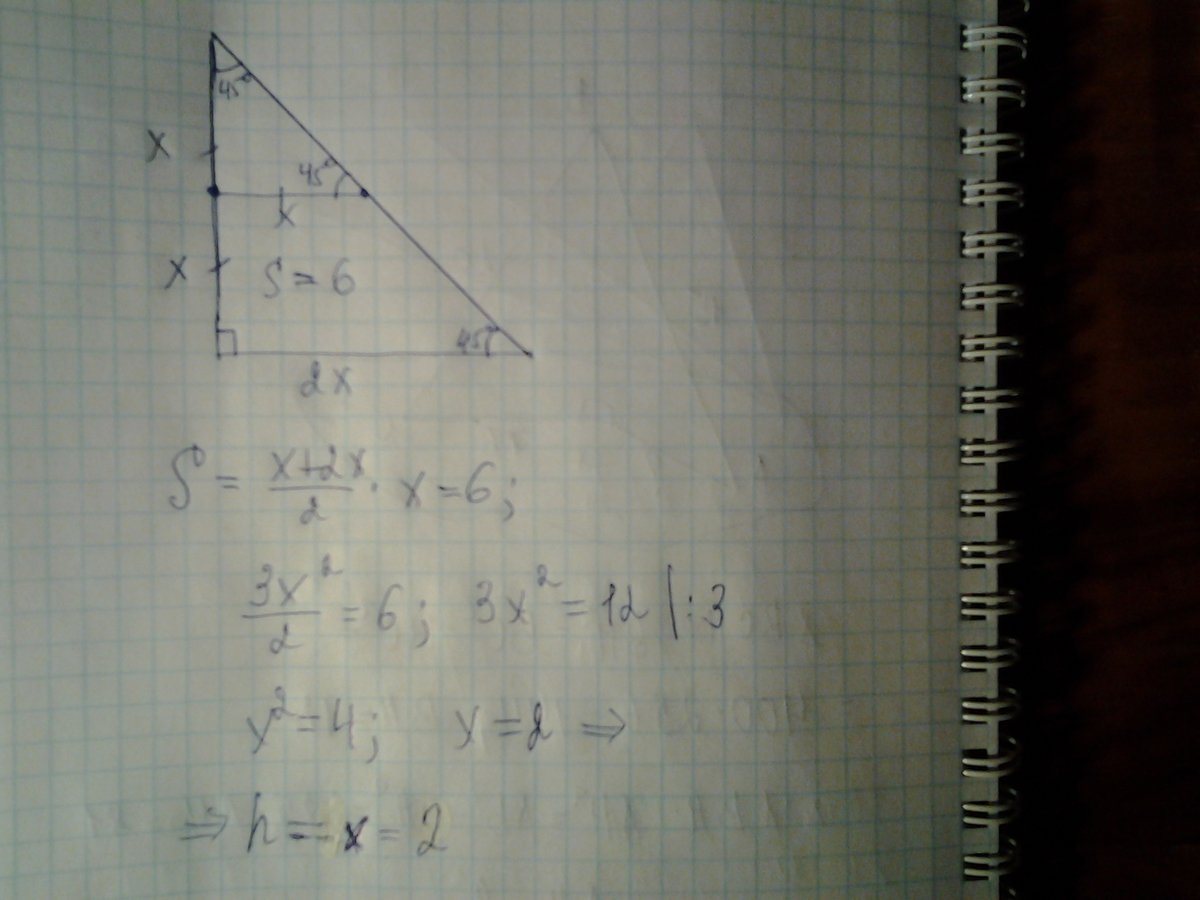 45°
x
45°
x
x
S = 6
45°
2x
S = \frac{x+2x}{2} · x = 6;
\frac{3x^2}{2} = 6; 3x^2 = 12 | :3
x^2 = 4; x = 2 ⇒
⇒ h = x = 2